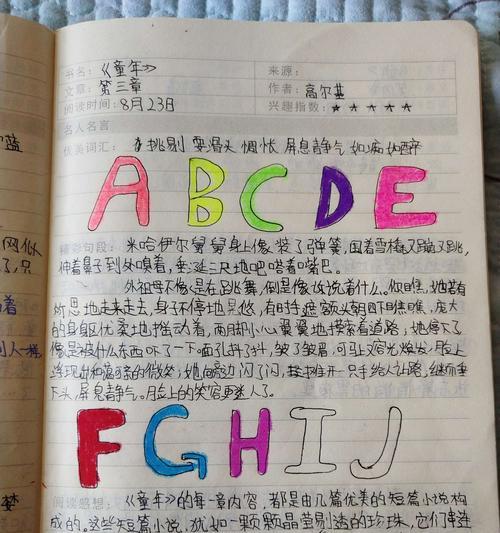 书名：《童年》 来源：
文章：第三章 作者：高尔基
阅读时间：8月23日 兴趣指数：★ ★ ★ ★ ★
名人名言
优美词汇： 挑剔 耍滑头 惆怅 屏息静气 如痴如醉
A B C D E
精彩句段： 米哈伊尔舅舅身上像装了弹簧，围着雪橇又蹦又跳，
伸着鼻子到外嗅着，垂涎三尺地吧嗒着嘴巴。
外祖母不像是在跳舞，倒是像诉说着什么，你瞧，她若有
所思地走来走去，身子不停地晃悠，有时遮额头朝四下瞧瞧，庞大
的身躯优柔地挪动着，两脚小心翼翼地探索着道路；她停下了
像是被什么东西吓了一下面孔抖了抖，皱了皱眉，可马上又容光焕发，脸上
和蔼的微笑；她向旁边闪了闪，给人让路，继而垂
下头，屏息静气。脸上的笑容更迷人了。
F G H I J
阅读感想： 《童年》的每一章内容，都是由几篇优美的短篇小说构
成的。这些短篇小说，犹如一颗颗晶莹剔透的珍珠，它们串连
蓝
网似
了，只
着
人一样
梦